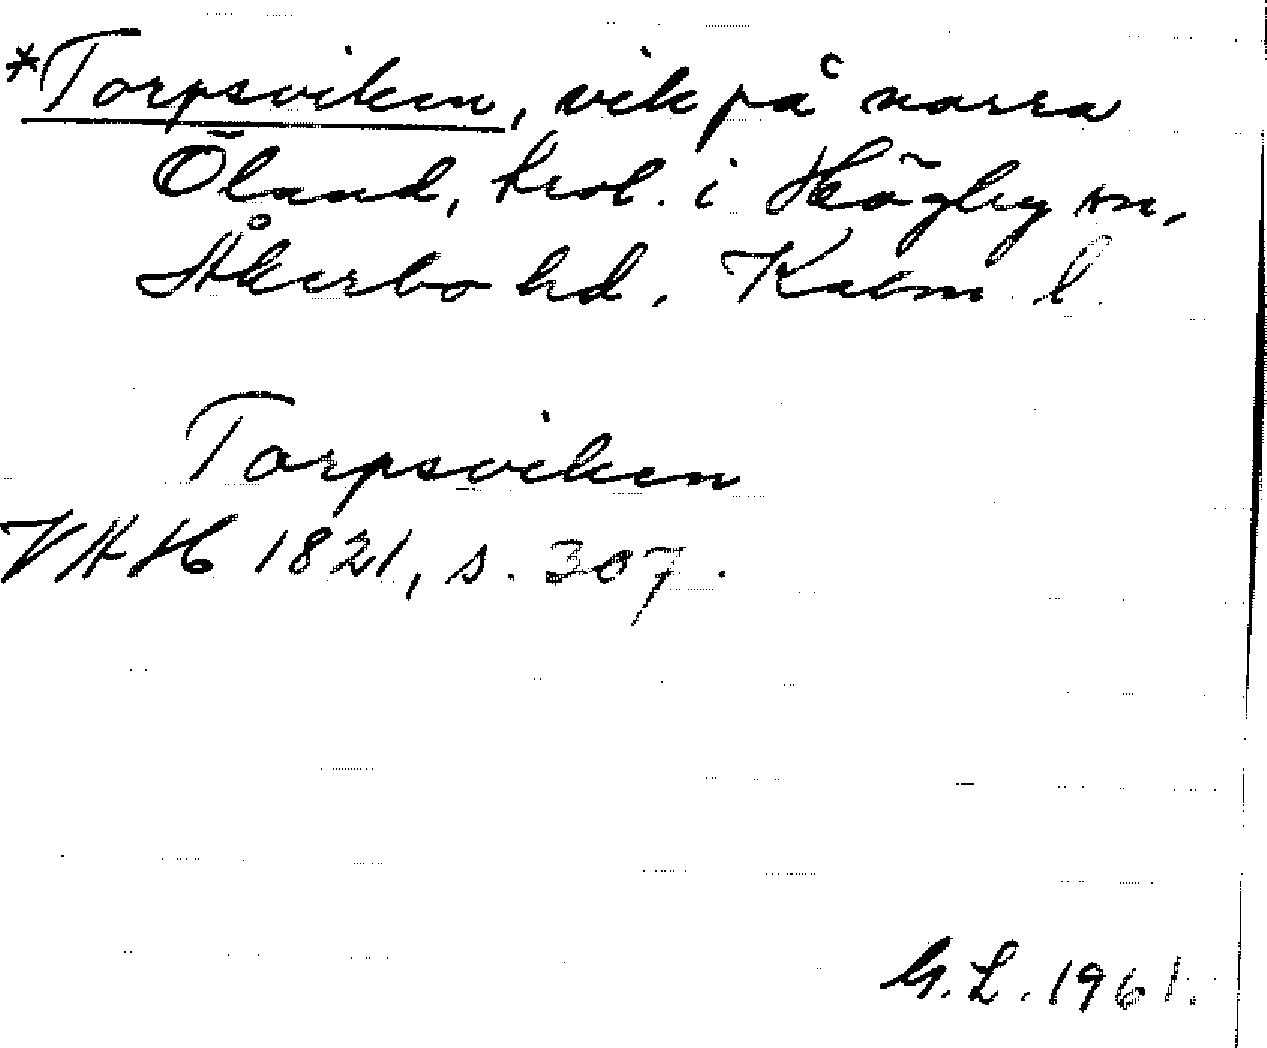 *Torpsviken, vik på norra
Öland, trol. i Högby sn,
Åkerbo hd, Kalm. l.
Torpsviken
VAH 1821, s. 307.
G.L. 1961.